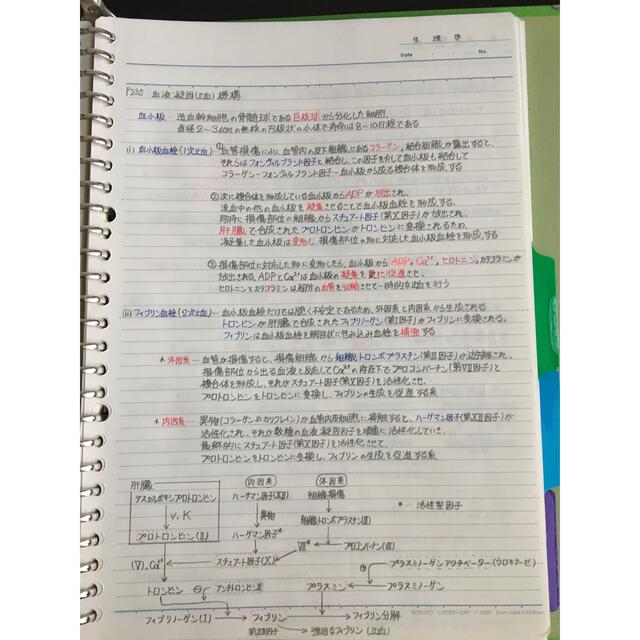 生理学
Date ・ ・ No.
P235 血液凝固(止血)機構
血小板 ― 造血幹細胞の骨髄球である巨核球から分化した細胞。
直径2〜3μmの無核の円板状の小体で寿命は8〜10日程である
(i) 血小板血栓(1次止血) ― ①血管損傷により、血管内の皮下組織にあるコラーゲン、結合組織が露出すると、
それらはフォンヴィルブランド因子と結合し、この因子を介して血小板も結合して
コラーゲン-フォンヴィルブランド因子-血小板から成る複合体を形成する
②次に複合体を形成している血小板からADPが放出され、
流血中の他の血小板を凝集させることで血小板血栓を形成する。
同時に損傷部位の組織からスチュアート因子(第Ⅹ因子)が放出され、
肝臓で合成されたプロトロンビンがトロンビンに変換されるため、
凝集した血小板は変形し、損傷部位の形に対応した血小板血栓を形成する
③損傷部位に対応した形に変形したら、血小板からADP、Ca²⁺、セロトニン、カテコラミンが
放出される。ADPとCa²⁺は血小板の凝集を更に促進させ、
セロトニンとカテコラミンは局所の血管を収縮させて一時的な止血を行う
(ii) フィブリン血栓(2次止血) ― 血小板血栓だけでは脆く不安定であるため、外因系と内因系から生成される
トロンビンが肝臓で合成されたフィブリノーゲン(第Ⅰ因子)がフィブリンに変換される。
フィブリンは血小板血栓を網目状に包み込み血栓を補強する
* 外因系 ― 血管が損傷すると、損傷組織から組織トロンボプラスチン(第Ⅲ因子)が遊離され、
損傷部位から出る血液と反応してCa²⁺の存在下でプロコンバーチン(第Ⅶ因子)と
複合体を形成し、それがスチュアート因子(第Ⅹ因子)を活性化させ、
プロトロンビンをトロンビンに変換し、フィブリンの生成を促進する系
* 内因系 ― 異物(コラーゲンやカリクレイン)が血管内皮細胞に接触すると、ハーゲマン因子(第ⅩⅡ因子)が
活性化され、それが数種の血液凝固因子を順番に活性化していき、
最終的にスチュアート因子(第Ⅹ因子)を活性化させて、
プロトロンビンをトロンビンに変換し、フィブリンの生成を促進する系
肝臓 内因系 外因系
デスカルボキシプロトロンビン ハーゲマン因子(ⅩⅡ) 組織損傷 *…活性型因子
V.K 異物 組織トロンボプラスチン(Ⅲ)
プロトロンビン(Ⅱ) ハーゲマン因子* Ⅶ* プロコンバーチン(Ⅶ)
(Ⅴ)、Ca²⁺ スチュアート因子(Ⅹ) ⊕ プラスミノーゲンアクチベーター(ウロキナーゼ)
トロンビン ⊖ アンチトロンビンⅢ プラスミン プラスミノーゲン
フィブリノーゲン(Ⅰ) フィブリン フィブリン分解
強固なフィブリン(止血)
KOKUYO LOOSE-LEAF